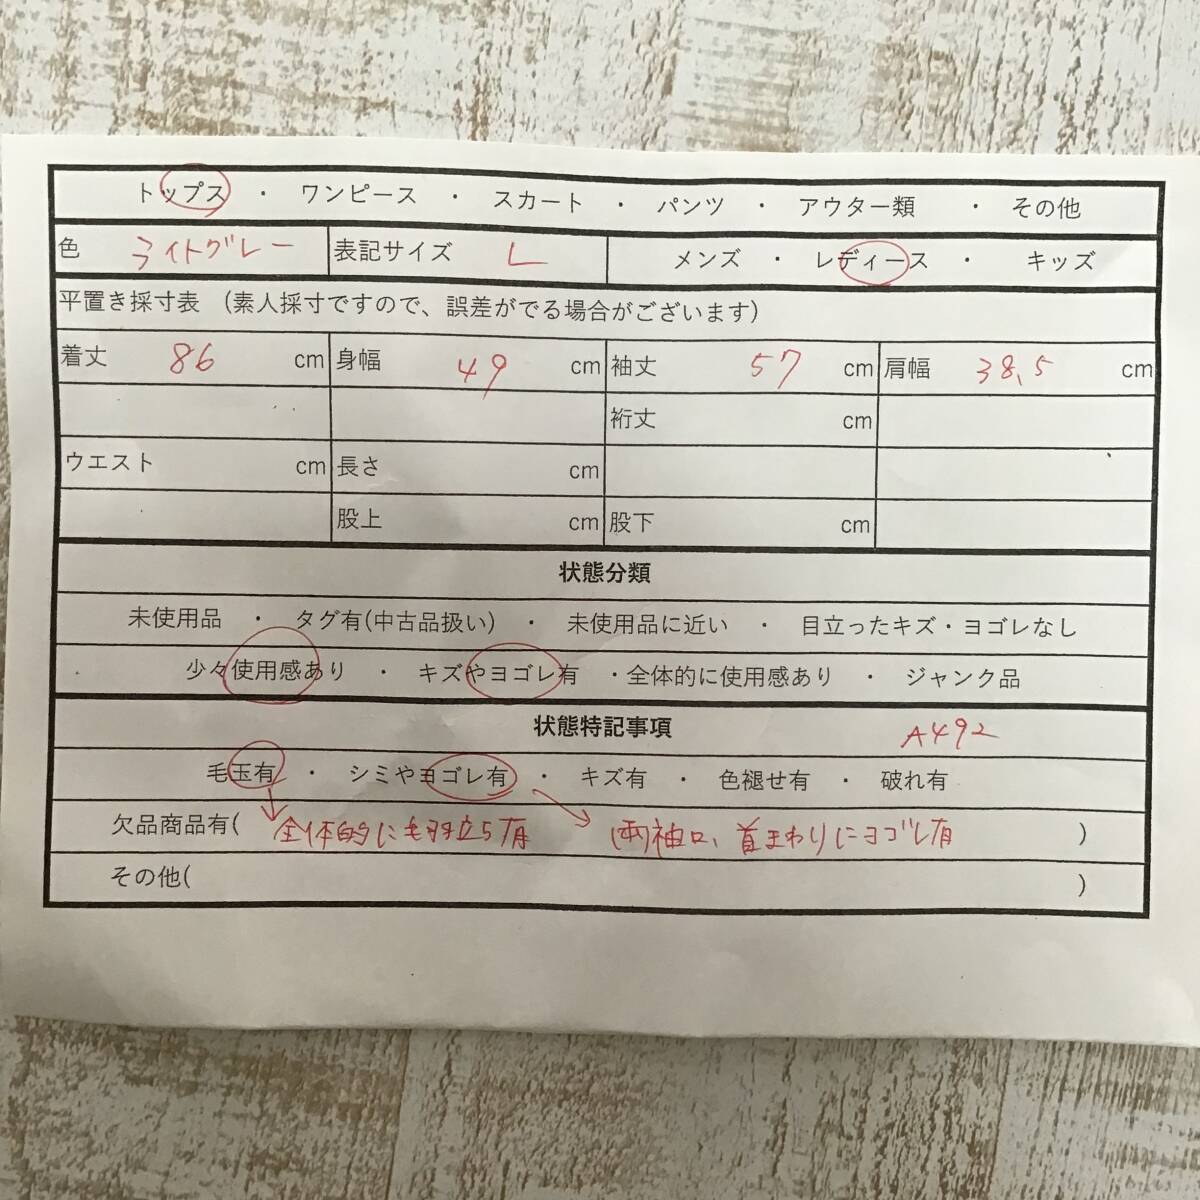 トップス ・ ワンピース ・ スカート ・ パンツ ・ アウター類 ・ その他
色 ライトグレー 表記サイズ L メンズ ・ レディース ・ キッズ
平置き採寸表 (素人採寸ですので、誤差がでる場合がございます)
着丈 86 cm 身幅 49 cm 袖丈 57 cm 肩幅 38.5 cm
裄丈 cm
ウエスト cm 長さ cm
股上 cm 股下 cm
状態分類
未使用品 ・ タグ有(中古品扱い) ・ 未使用品に近い ・ 目立ったキズ・ヨゴレなし
少々使用感あり ・ キズやヨゴレ有 ・全体的に使用感あり ・ ジャンク品
状態特記事項 A492
毛玉有 ・ シミやヨゴレ有 ・ キズ有 ・ 色褪せ有 ・ 破れ有
欠品商品有( 全体的に毛羽立ち有 (両)袖口、首まわりにヨゴレ有 )
その他( )